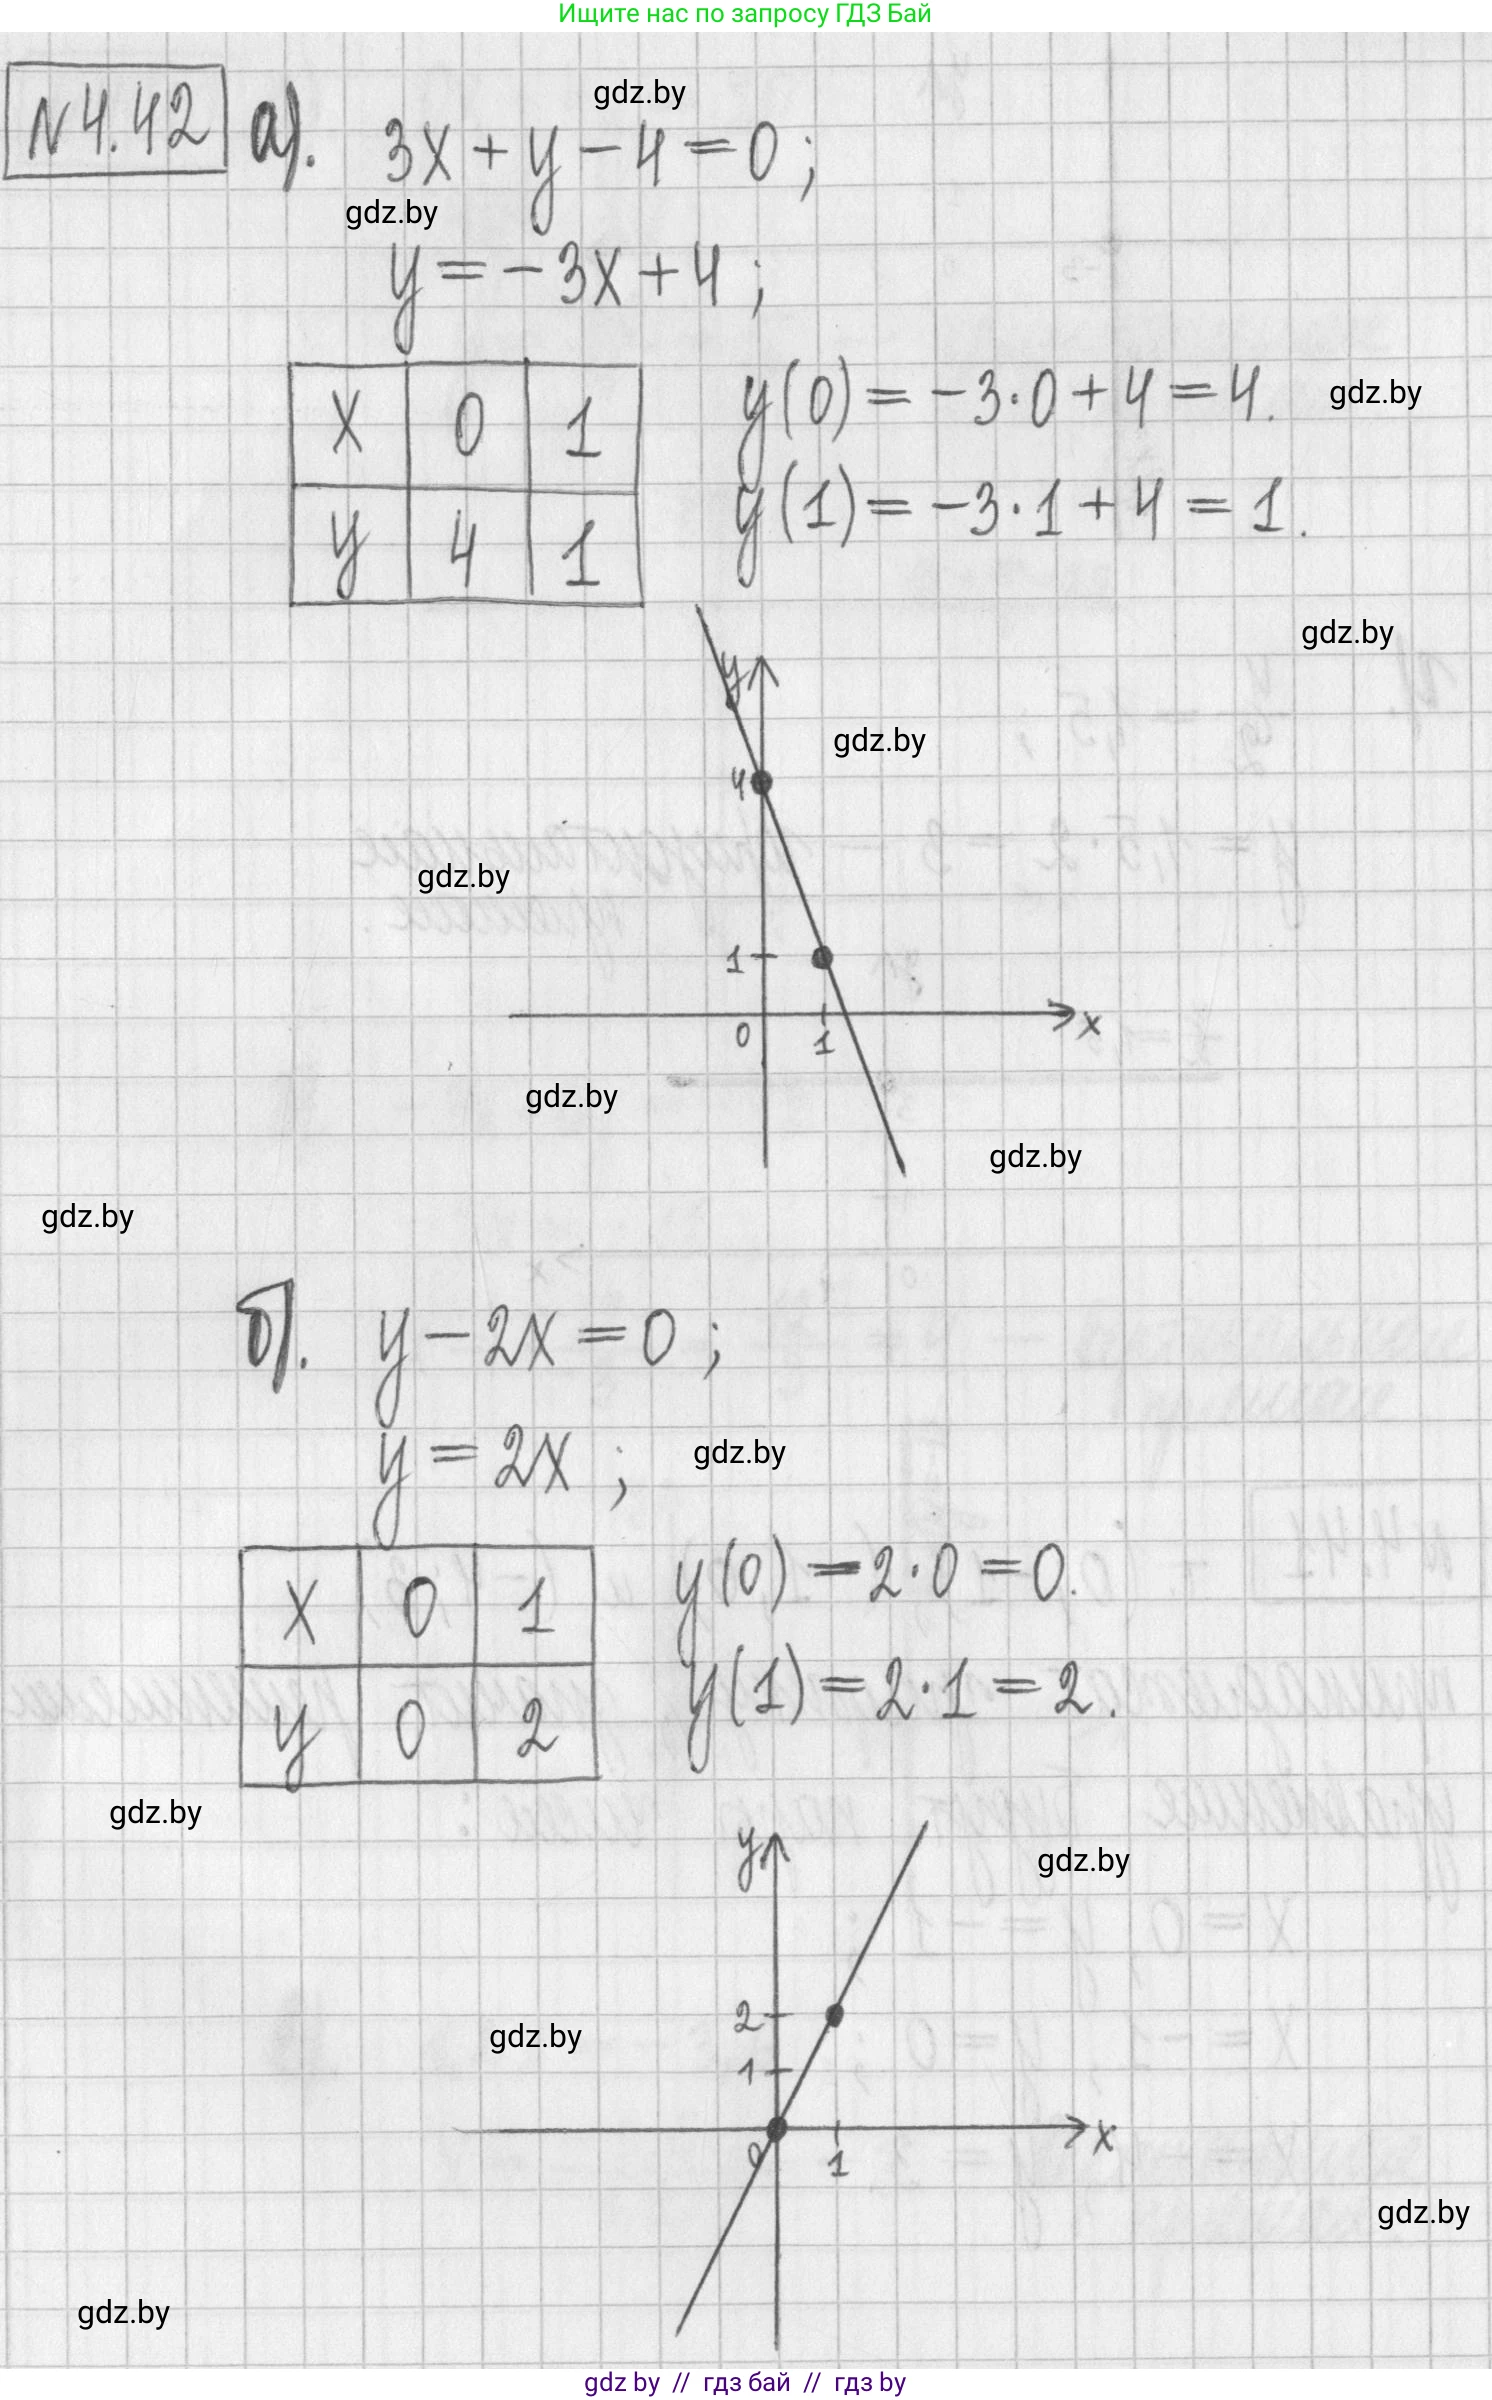 Ищите нас по запросу ГДЗ Бай
№4.42 а). 3x + y − 4 = 0 ;
gdz.by
gdz.by
y = −3x + 4 ;
x 0 1
y 4 1
y(0) = −3·0 + 4 = 4.
gdz.by
y(1) = −3·1 + 4 = 1.
gdz.by
y
gdz.by
4
gdz.by
1
0 1 x
gdz.by
gdz.by
gdz.by
б). y − 2x = 0 ;
y = 2x ;
gdz.by
x 0 1
y 0 2
y(0) = 2·0 = 0.
y(1) = 2·1 = 2.
gdz.by
y
gdz.by
2
gdz.by
1
0 1 x
gdz.by
gdz.by
gdz by // гдз бай // гдз by